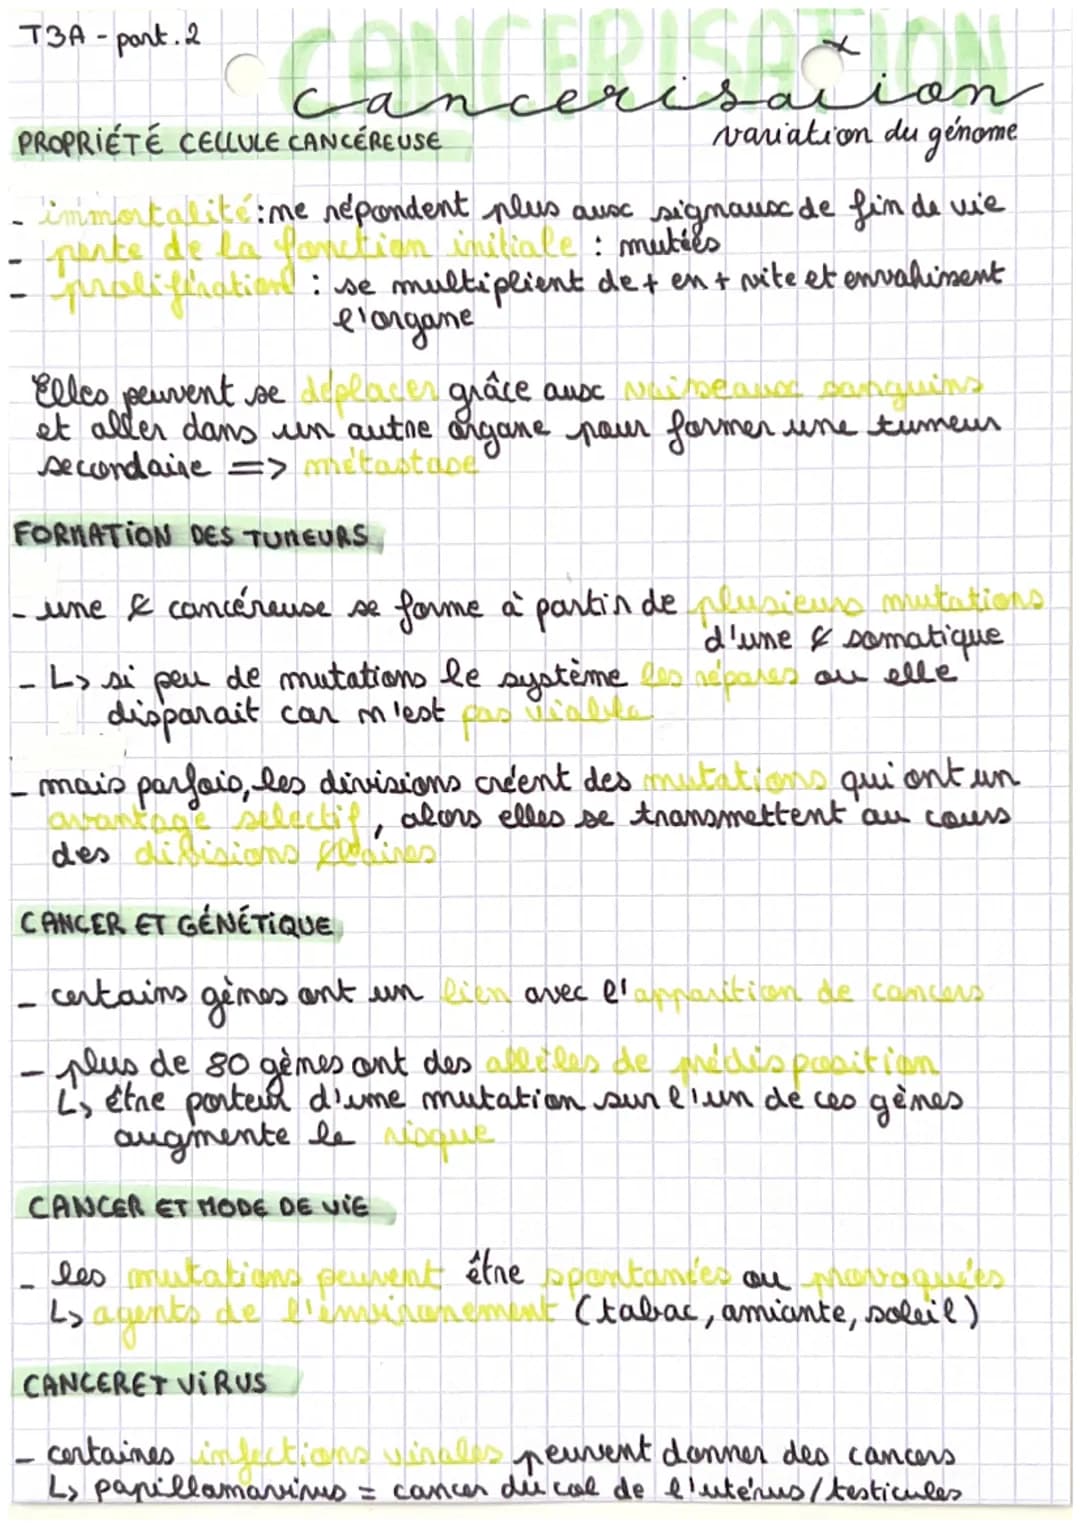 T3A - part.2
CANCERISATION
cancerisation
variation du génome
PROPRIÉTÉ CELLULE CANCÉREUSE
- immortalité : ne répondent plus aux signaux de fin de vie
- perte de la fonction initiale : mutées
- prolifération : se multiplient de + en + vite et envahissent
l'organe
Elles peuvent se déplacer grâce aux vaisseaux sanguins
et aller dans un autre organe pour former une tumeur
secondaire => métastase
FORMATION DES TUMEURS
- une ₵ cancéreuse se forme à partir de plusieurs mutations
d'une ₵ somatique
- L> si peu de mutations le système les répares ou elle
disparait car n'est pas viable
- mais parfois, les divisions créent des mutations qui ont un
avantage selectif, alors elles se transmettent au cours
des divisions ₵laires
CANCER ET GÉNÉTIQUE
- certains gènes ont un lien avec l'apparition de cancers
- plus de 80 gènes ont des allèles de prédisposition
L> être porteur d'une mutation sur l'un de ces gènes
augmente le risque
CANCER ET MODE DE VIE
- les mutations peuvent être spontanées ou provoquées
L> agents de l'environement (tabac, amiante, soleil)
CANCER ET VIRUS
- certaines infections virales peuvent donner des cancers
L> papillomavirus = cancer du col de l'utérus / testicules